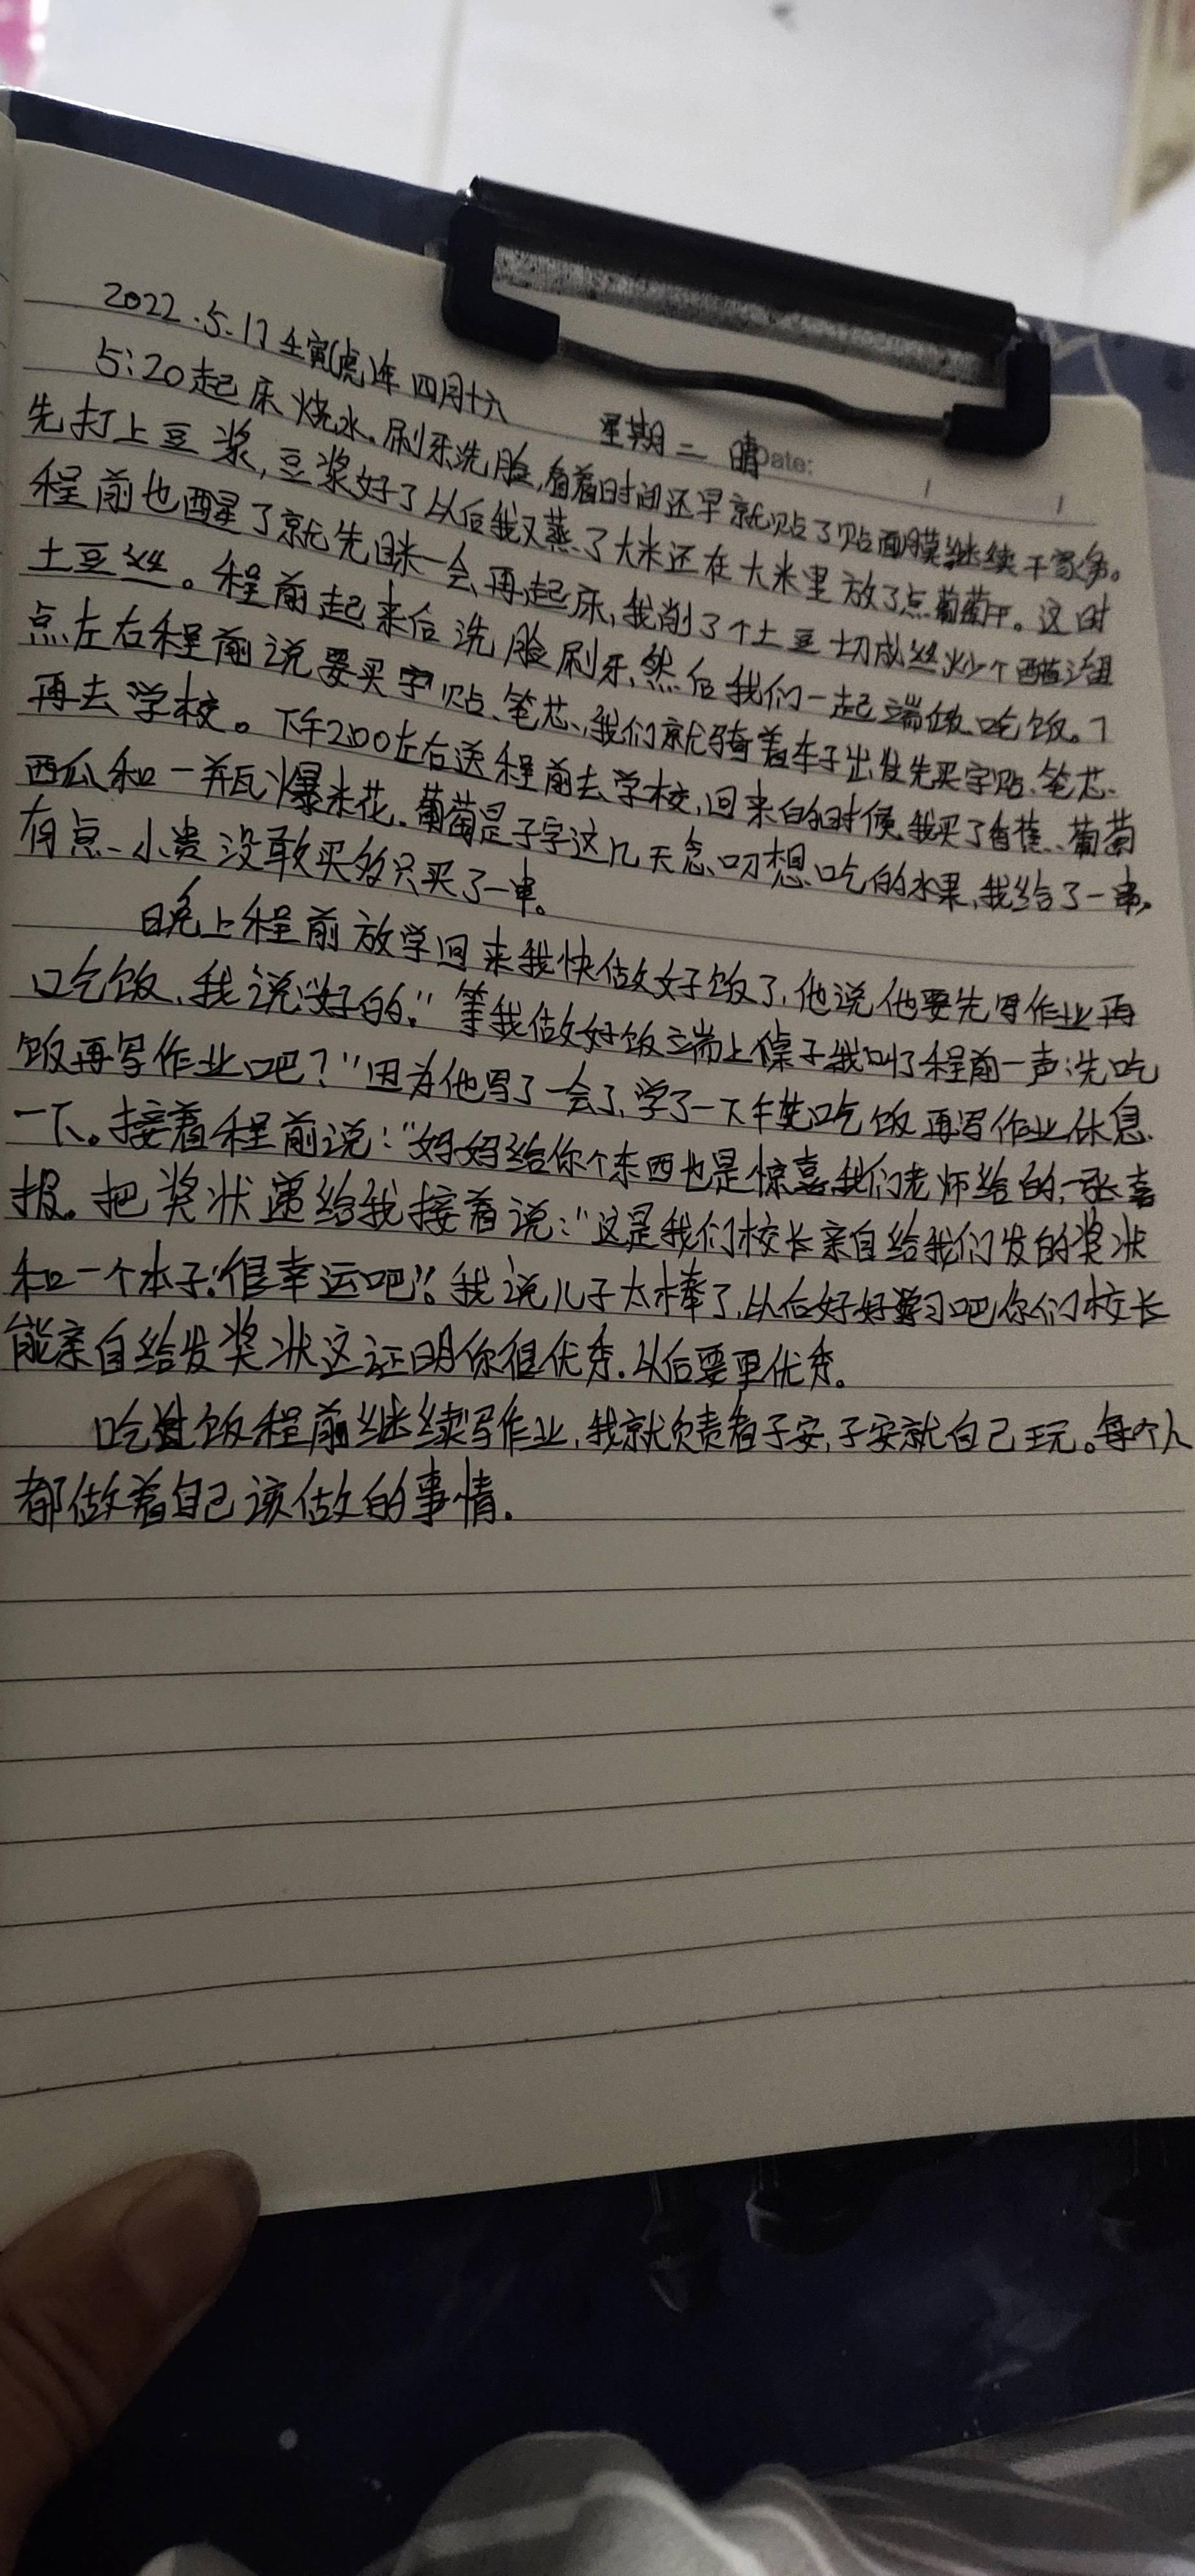 2022.5.17 壬寅(虎)年 四月十六 星期二 晴 Date:
5:20起床烧水.刷牙洗脸,看着时间还早就贴了贴面膜继续干家务。
先打上豆浆,豆浆好了以后我又蒸了大米还在大米里放了点葡萄干。这时
程前也醒了就先眯一会再起床,我削了个土豆切成丝炒个醋溜
土豆丝。程前起来后洗脸刷牙,然后我们一起端做吃饭。7
点左右程前说要买字贴、笔芯、我们就骑着车子出发先买字贴、笔芯、
再去学校。下午2:00左右送程前去学校,回来的时候,我买了香蕉、葡萄
西瓜和一瓶爆米花.葡萄是子字这几天念叨想吃的水果,我给了一串,
有点小贵没敢买多只买了一串。
晚上程前放学回来我快做好饭了,他说他要先写作业再
吃饭,我说"好的."等我做好饭端上桌子我叫了程前一声:先吃
饭再写作业吧?"因为他写了一会了,学了一下午先吃饭再写作业休息
一下。接着程前说:"妈妈给你个东西也是惊喜,我们老师给的,一张喜
报。把奖状递给我接着说:"这是我们校长亲自给我们发的奖状
和一个本子!很幸运吧"。我说儿子太棒了,以后好好学习吧,你们校长
能亲自给发奖状这证明你很优秀.以后要更优秀。
吃过饭程前继续写作业,我就负责看子安,子安就自己玩。每个人
都做着自己该做的事情.